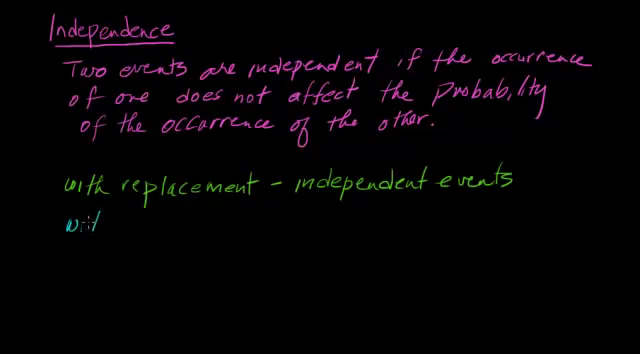 Independence
Two events are independent if the occurrence
of one does not affect the probability
of the occurrence of the other.
with replacement - independent events
wit